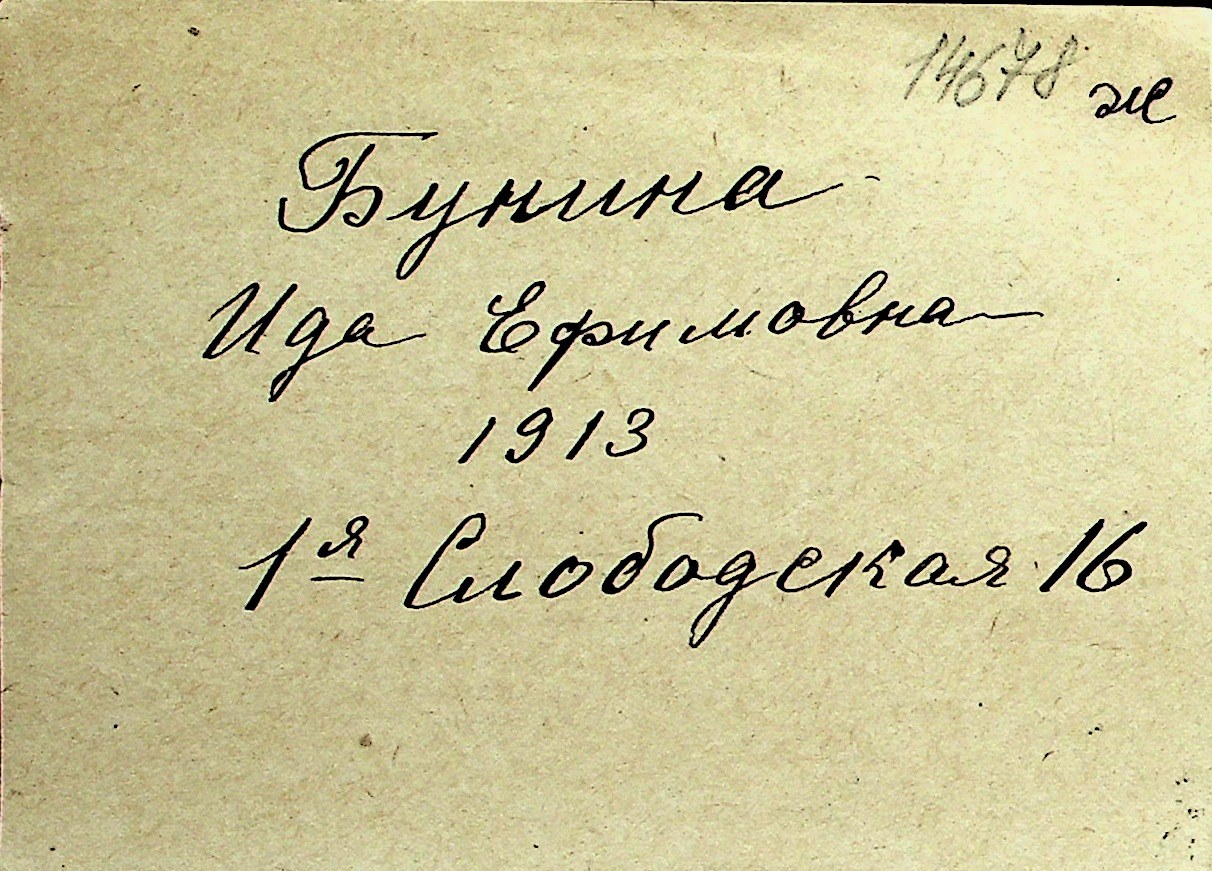 14678 ж
Бунина
Ида Ефимовна
1913
1я Слободская 16